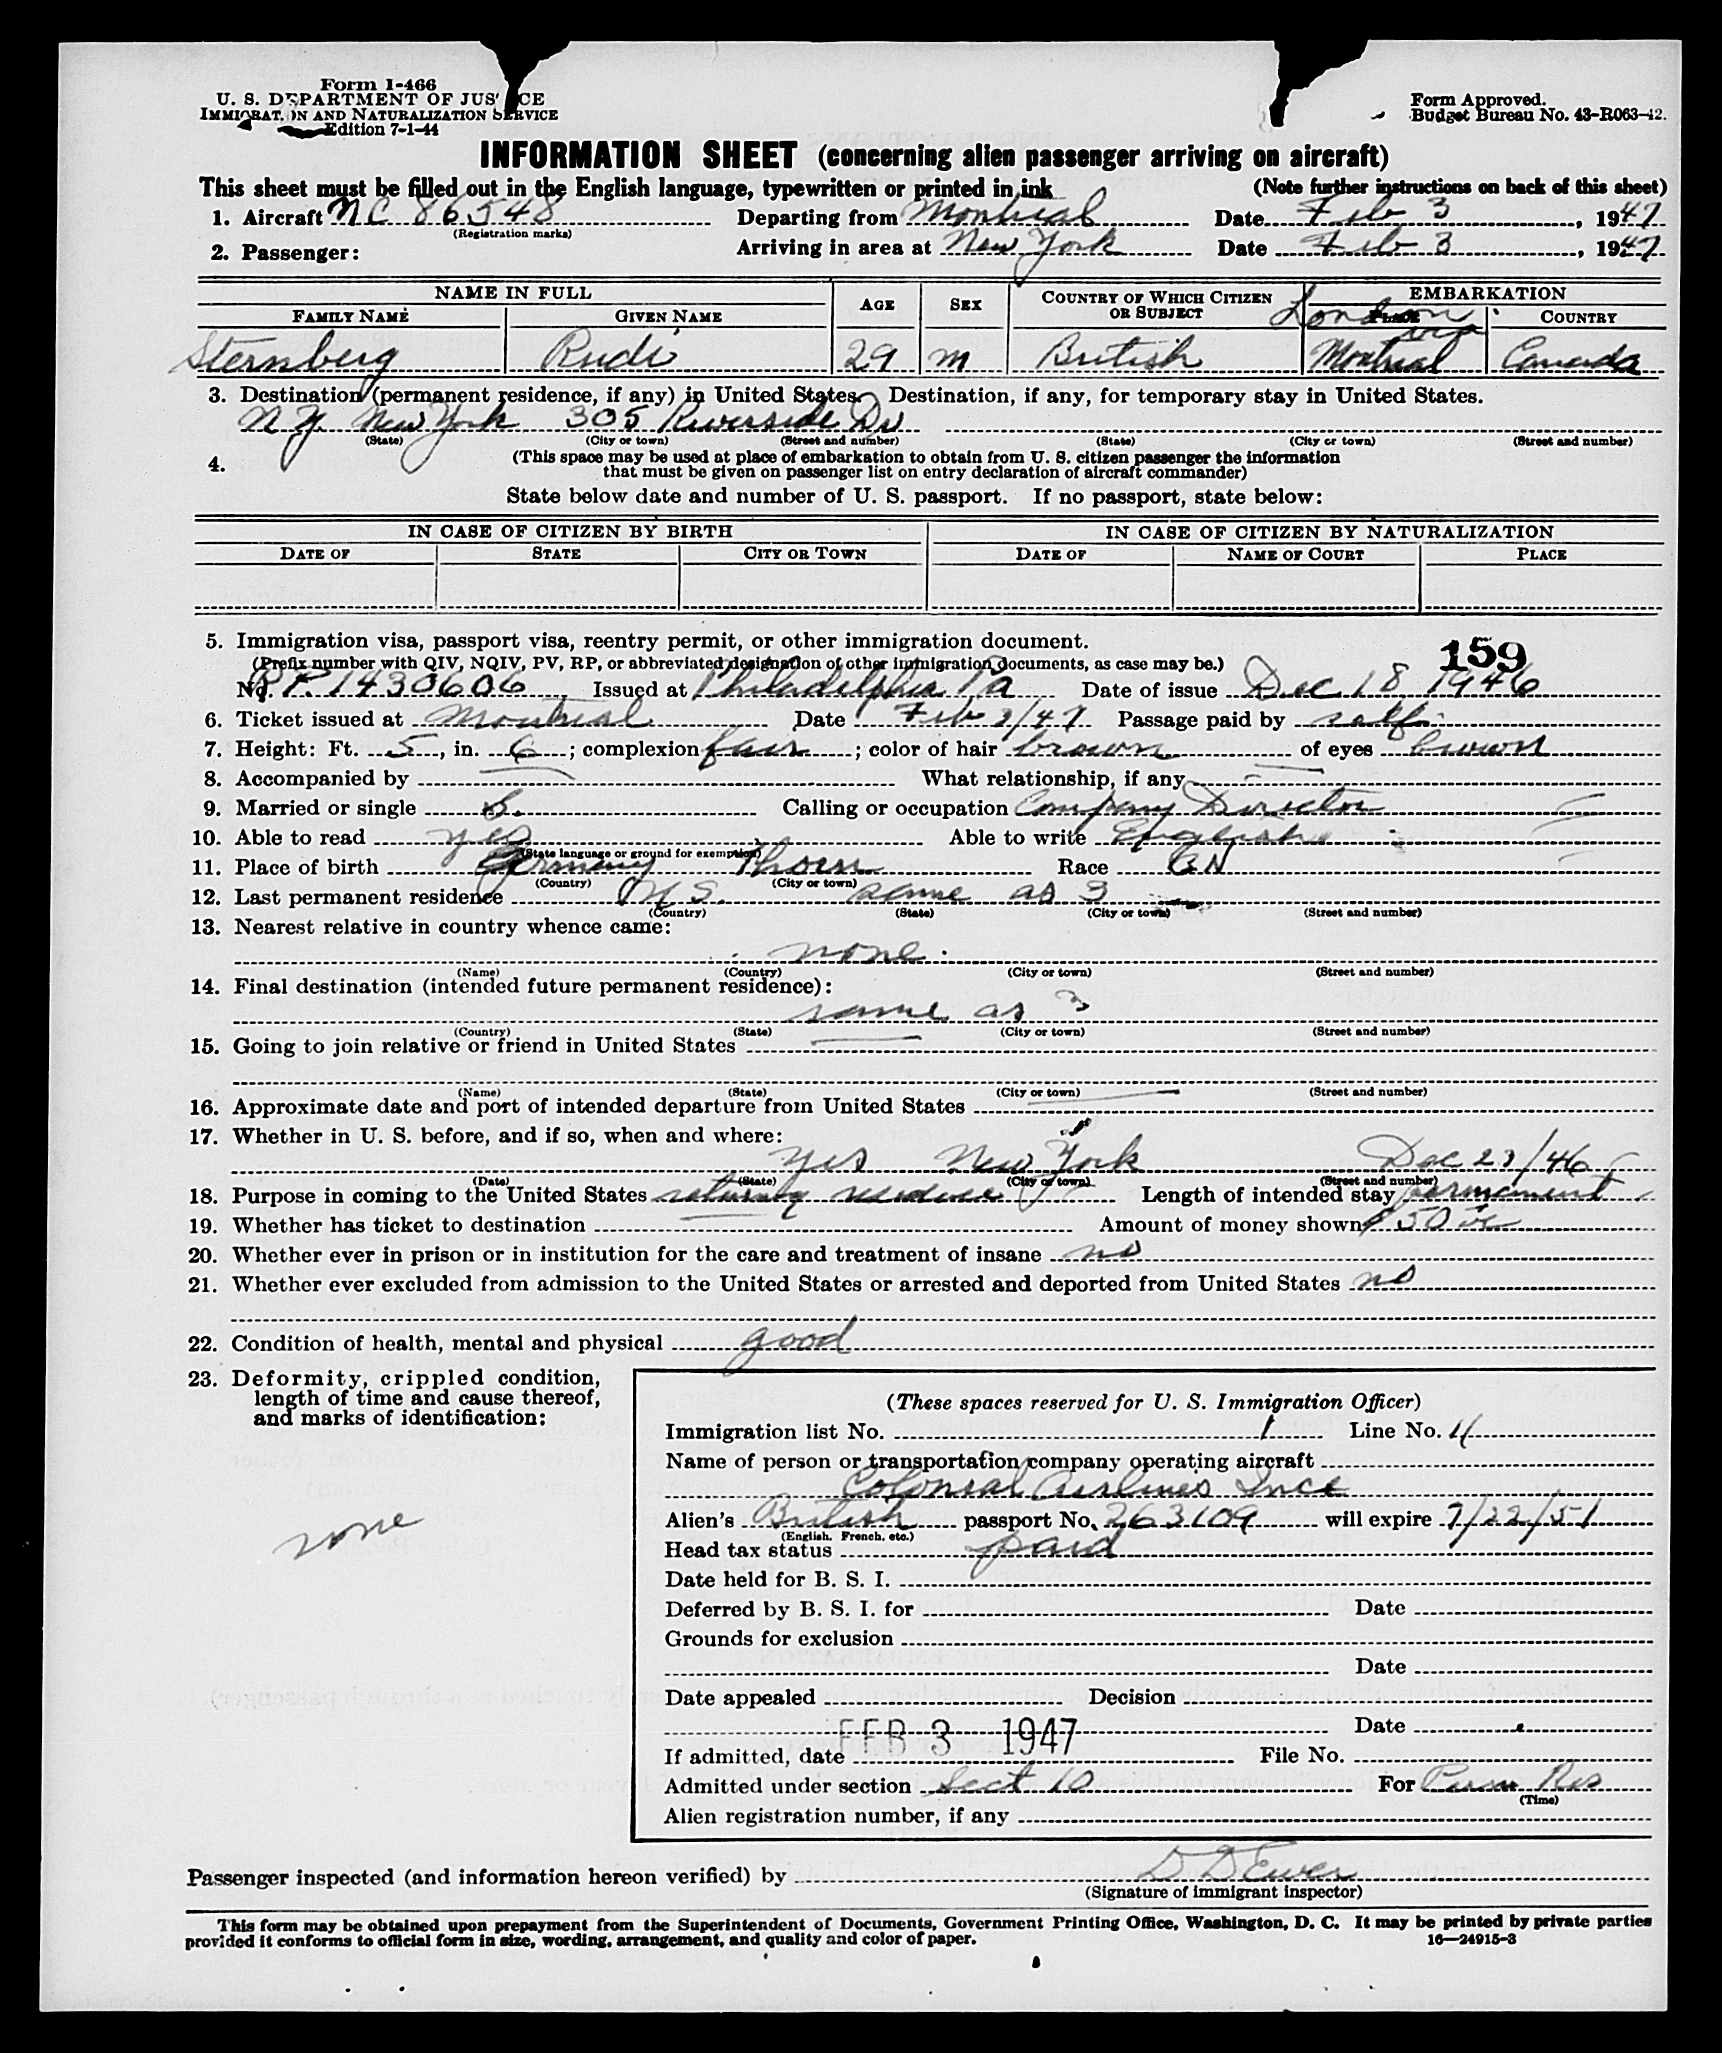 Form I-466
U. S. DEPARTMENT OF JUS CE
IMMIGRAT ON AND NATURALIZATION SERVICE
Edition 7-1-44
Form Approved.
Budget Bureau No. 43-R063-42.
INFORMATION SHEET (concerning alien passenger arriving on aircraft)
This sheet must be filled out in the English language, typewritten or printed in ink (Note further instructions on back of this sheet)
1. Aircraft NC 86548 Departing from Montreal Date Feb 3, 1947
(Registration marks)
2. Passenger: Arriving in area at New York Date Feb 3, 1947
NAME IN FULL AGE SEX COUNTRY OF WHICH CITIZEN OR SUBJECT EMBARKATION
FAMILY NAME GIVEN NAME PLACE COUNTRY
London via
Sternberg Rudi 29 M British Montreal Canada
3. Destination (permanent residence, if any) in United States. Destination, if any, for temporary stay in United States.
N.Y. New York 305 Riverside Dr
(State) (City or town) (Street and number) (State) (City or town) (Street and number)
4. (This space may be used at place of embarkation to obtain from U. S. citizen passenger the information
that must be given on passenger list on entry declaration of aircraft commander)
State below date and number of U. S. passport. If no passport, state below:
IN CASE OF CITIZEN BY BIRTH IN CASE OF CITIZEN BY NATURALIZATION
DATE OF STATE CITY OR TOWN DATE OF NAME OF COURT PLACE
5. Immigration visa, passport visa, reentry permit, or other immigration document. 159
(Prefix number with QIV, NQIV, PV, RP, or abbreviated designation of other immigration documents, as case may be.)
No. RP 1430606 Issued at Philadelphia Pa Date of issue Dec 18 1946
6. Ticket issued at Montreal Date Feb 3/47 Passage paid by self
7. Height: Ft. 5, in. 6; complexion fair; color of hair brown of eyes brown
8. Accompanied by — What relationship, if any —
9. Married or single S. Calling or occupation Company Director
10. Able to read yes Able to write English
(State language or ground for exemption)
11. Place of birth Germany Thorn Race GN
(Country) (City or town)
12. Last permanent residence U.S. same as 3
(Country) (State) (City or town) (Street and number)
13. Nearest relative in country whence came:
none
(Name) (Country) (City or town) (Street and number)
14. Final destination (intended future permanent residence):
same as 3
(Country) (State) (City or town) (Street and number)
15. Going to join relative or friend in United States —
(Name) (State) (City or town) (Street and number)
16. Approximate date and port of intended departure from United States —
17. Whether in U. S. before, and if so, when and where:
yes New York Dec 23/46
(Date) (State) (City or town) (Street and number)
18. Purpose in coming to the United States returning residence Length of intended stay permanent
19. Whether has ticket to destination — Amount of money shown $50
20. Whether ever in prison or in institution for the care and treatment of insane no
21. Whether ever excluded from admission to the United States or arrested and deported from United States no
22. Condition of health, mental and physical good
23. Deformity, crippled condition,
length of time and cause thereof,
and marks of identification:
none
(These spaces reserved for U. S. Immigration Officer)
Immigration list No. 1 Line No. 4
Name of person or transportation company operating aircraft
Colonial Airlines Inc
Alien's British passport No. 263109 will expire 7/22/51
(English, French, etc.)
Head tax status paid
Date held for B. S. I.
Deferred by B. S. I. for Date
Grounds for exclusion
Date
Date appealed Decision
Date
If admitted, date FEB 3 1947 File No.
Admitted under section Sect 10 For Perm Res
(Time)
Alien registration number, if any
Passenger inspected (and information hereon verified) by D D Ewer
(Signature of immigrant inspector)
This form may be obtained upon prepayment from the Superintendent of Documents, Government Printing Office, Washington, D. C. It may be printed by private parties
provided it conforms to official form in size, wording, arrangement, and quality and color of paper. 16—24915-3